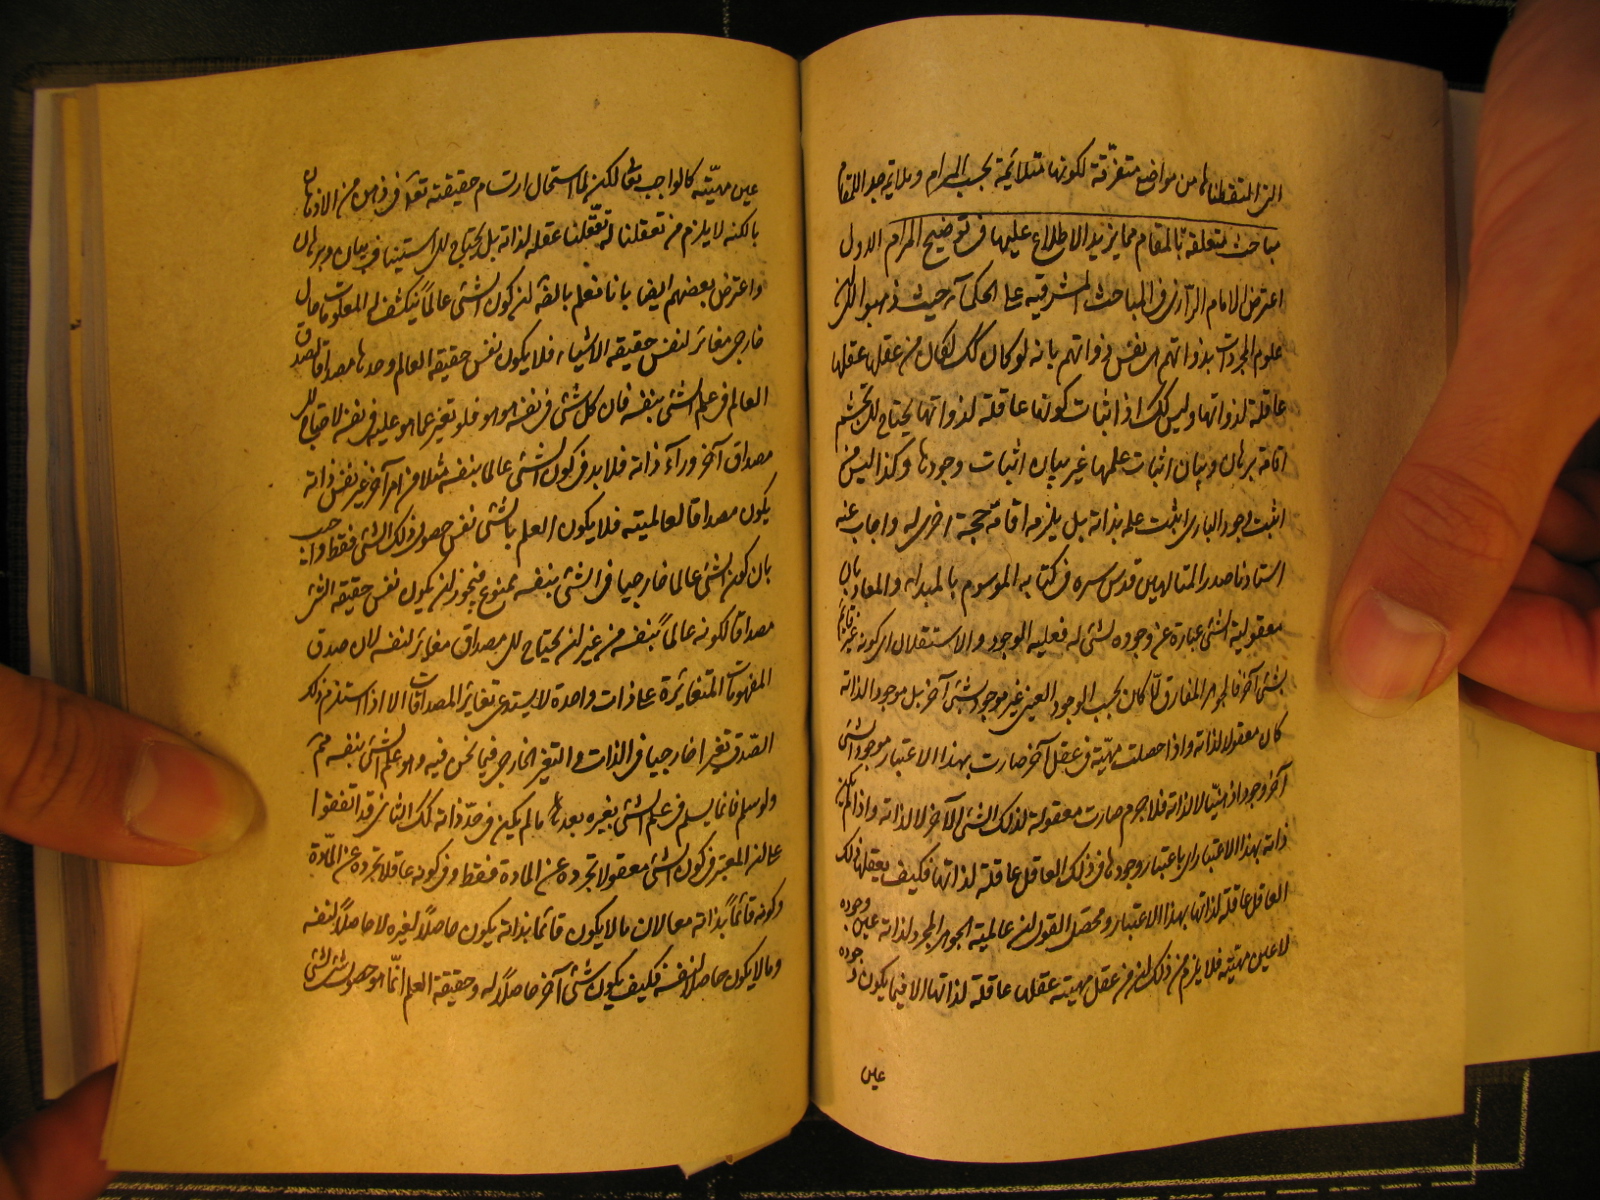 التى التقطناها من مواضع متفرّقة لكونها متلائمة بحسب المرام وملايمة جدا للمقام
مباحث متعلقة بالمقام مما يزيد الاطلاع عليها فى توضيح المرام الاول
اعترض الامام الرازى فى المباحث المشرقيه على الحكمآء حيث ذهبوا الى ان
علوم المجردات بذواتهم نفس ذواتهم بانه لو كان كك لكان من عقلها عقلها
عاقلة لذواتها وليس كك اذ اثبات كونها عاقلة لذواتها يحتاج الى تجشم
اقامة برهان وبيان اثبات علمها غير بيان اثبات وجودها وكذا ليس من
اثبت وجود البارى اثبت علمه بذاته بل يلزمه اقامة حجة اخرى له واجاب عنه
استادنا صدر المتالهين قدس سره فى كتابه الموسوم بالمبداء والمعاد بان
معقولية الشئ عبارة عن وجوده لشئ له فعلية الوجود والاستقلال اى كونه غير قائم
بشئ آخر فالجوهر المفارق لمّا كان بحسب الوجود العينى غير موجود لشئ آخر بل موجودا لذاته
كان معقولا لذاته واذا حصلت مهيّته فى عقل آخر صارت بهذا الاعتبار موجودا لشئ
آخر وجودا ذهنيا لا لذاته فلا جرم صارت معقولة لذلك الشئ الآخر لا لذاته واذا لم يكن
ذاته بهذا الاعتبار اى باعتبار وجودها فى ذلك العاقل عاقلة لذاتها فكيف يعقلها ذلك
العاقل عاقلة لذاتها بهذا الاعتبار ومحصّل القول ان عالمية الجوهر المجرد لذاته عين وجوده
لا عين مهيّته فلا يلزم من ذلك ان من عقل مهيته عقلها عاقلة لذاتها الا فيما يكون وجوده
عين
عين مهيّته كالواجب تعا لكن لما استحال ارتسام حقيقته تع فى ذهن من الاذهان
بالكنه لا يلزم من تعقلنا له تعقّلنا عقله لذاته بل يحتاج الى استيناف بيان وبرهان
واعترض بعضهم ايضا بانا نعلم بالضه ان كون الشئ عالماً ينكشف له المعلومات حال
خارجى مغائر لنفس حقيقة الاشياء فلا يكون نفس حقيقة العالم وحدها مصداقا لصدق
العالم فى علم الشئ بنفسه فان كل شئ فى نفسه هو هو فلو تغير عما هو عليه فى نفسه لاحتاج الى
مصداق آخر ورآء ذاته فلا بد فى كون الشئ عالما بنفسه مثلا من امر آخر غير نفس ذاته
يكون مصداقا لعالميته فلا يكون العلم بالشئ نفس حصول ذلك الشئ فقط واجيب
بان كون الشئ عالما خارجيا فى الشئ بنفسه ممنوع فيجوز ان يكون نفس حقيقة الشئ
مصداقا لكونه عالماً بنفسه من غير ان يحتاج الى مصداق مغائر لنفسه لان صدق
المفهومات المتغائرة على ذات واحدة لا يستدعى تغائر المصداقات الا اذا استلزم ذلك
الصّدق تغيرا خارجيا فى الذات والتغير الخارجى فيما نحن فيه وهو علم الشئ بنفسه مم
ولو سلم فانما يسلم فى علم الشئ بغيره بعد ما لم يكن فى حدّ ذاته كك الثانى قد اتفقوا
على ان المعتبر فى كون الشئ معقولا تجرده عن المادة فقط وفى كونه عاقلا تجرده عن المادّة
وكونه قائماً بذاته معا لان ما لا يكون قائما بذاته يكون حاصلاً لغيره لا حاصلاً لنفسه
وما لا يكون حاصلا لنفسه فكيف يكون شئ آخر حاصلاً له وحقيقة العلم انّما هو حصول شئ لشئ